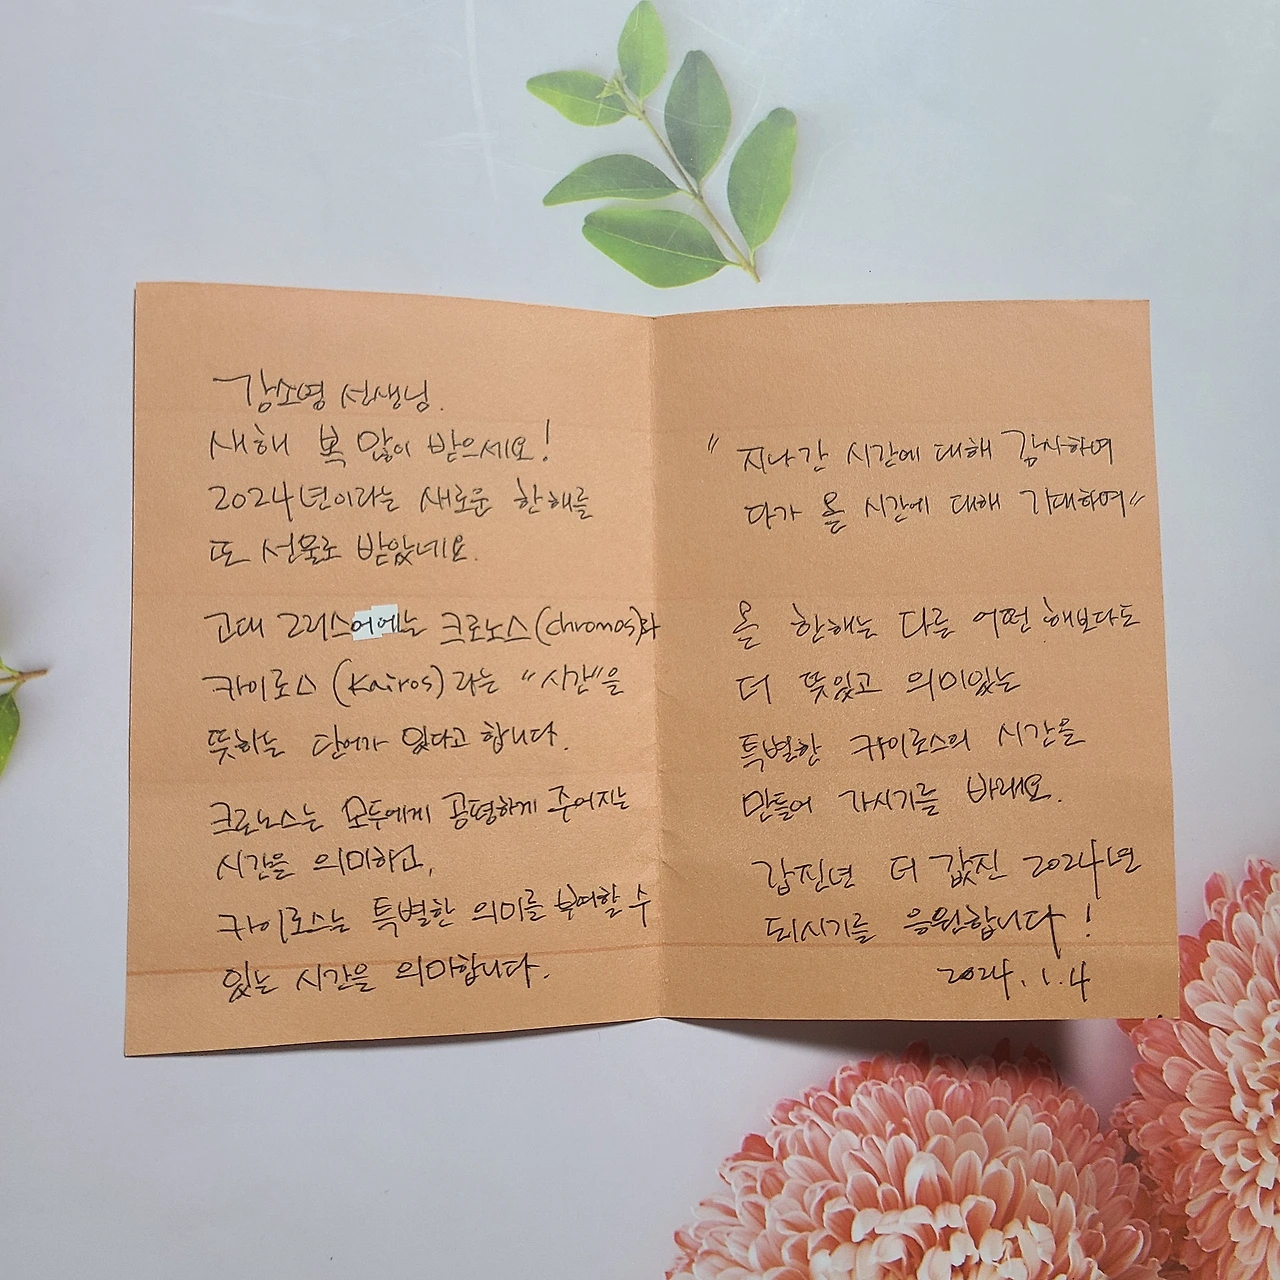 강소영 선생님.
새해 복 많이 받으세요!
2024년이라는 새로운 한해를
또 선물로 받았네요.
고대 그리스어에는 크로노스(chronos)와
카이로스(Kairos)라는 "시간"을
뜻하는 단어가 있다고 합니다.
크로노스는 모두에게 공평하게 주어지는
시간을 의미하고,
카이로스는 특별한 의미를 부여할 수
있는 시간을 의미합니다.
"지나간 시간에 대해 감사하며
다가 올 시간에 대해 기대하며"
올 한해는 다른 어떤 해보다도
더 뜻있고 의미있는
특별한 카이로스의 시간을
만들어 가시기를 바래요.
갑진년 더 값진 2024년
되시기를 응원합니다!
2024.1.4